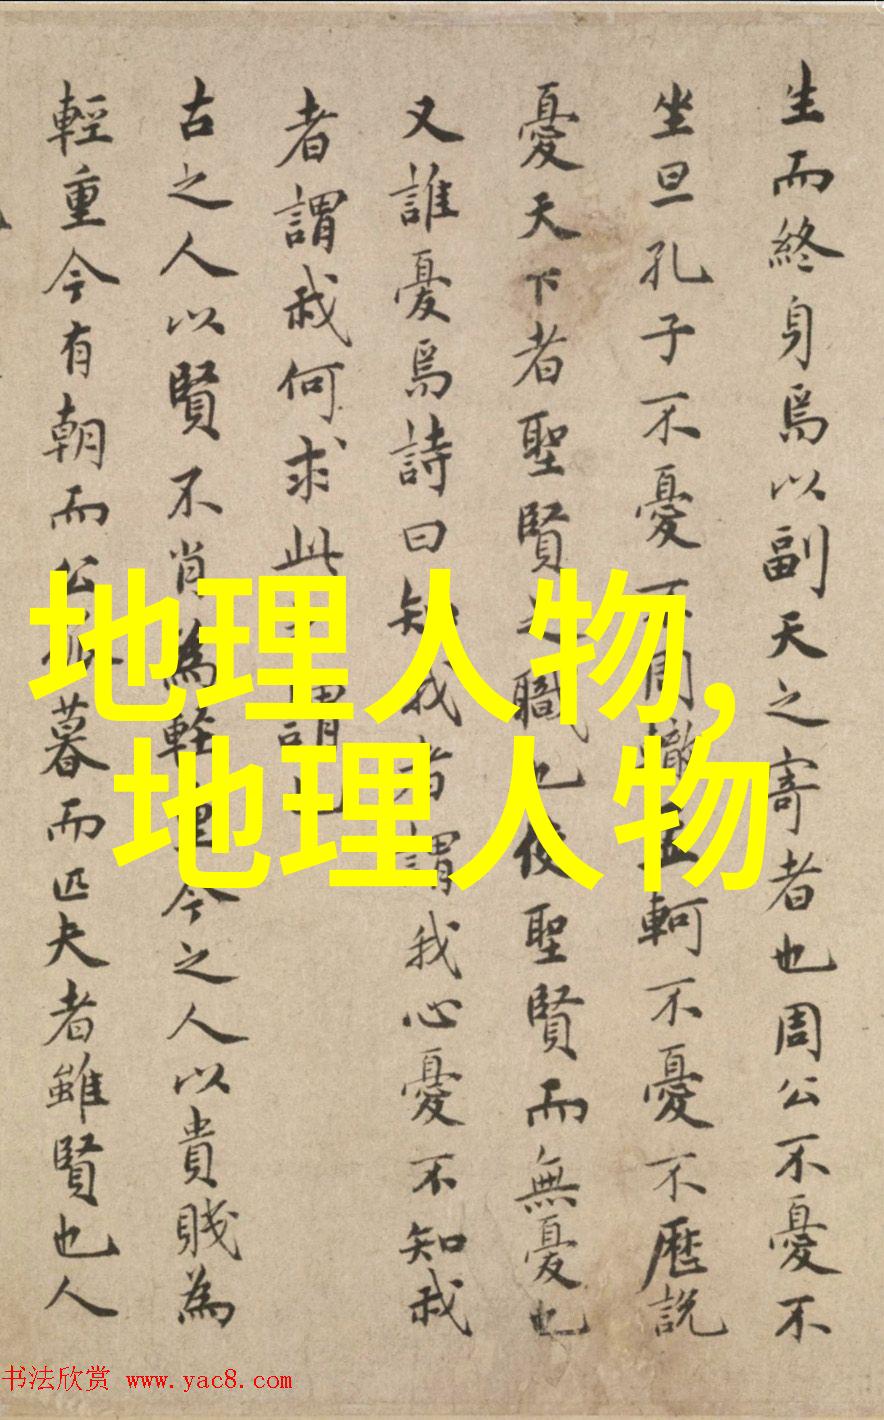 生而終身焉以副天之寄者也周公不憂不
坐旦孔子不憂不周轍孟軻不憂不歷説
憂天下者聖賢之職也使聖賢而無憂也
又誰憂焉詩曰知我者謂我心憂不知我
者謂我何求此之謂也
古之人以賢不肖為輕重今之人以貴賤為
輕重今有朝而公暮而匹夫者雖賢也人
地理人物,
地理人物
书法欣赏 www.yac8.com